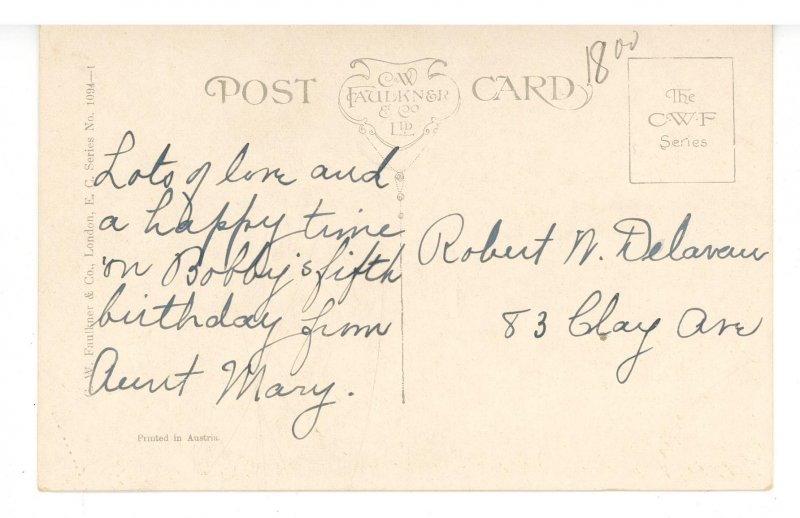 18 00
POST CARD
C.W. FAULKNER & CO LTD
The
C.W.F
Series
C. W. Faulkner & Co., London, E. C. Series No. 1094—1
Lots of love and
a happy time
on Bobby's fifth
birthday from
Aunt Mary.
Robert W. Delavau
83 Clay Ave
Printed in Austria.